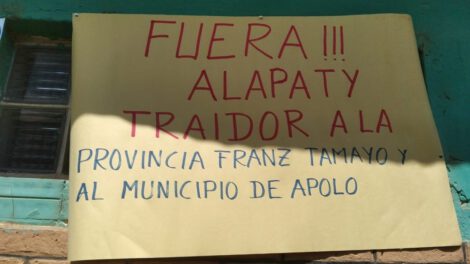 FUERA!!!
ALAPATY
TRAIDOR A LA
PROVINCIA FRANZ TAMAYO Y
AL MUNICIPIO DE APOLO